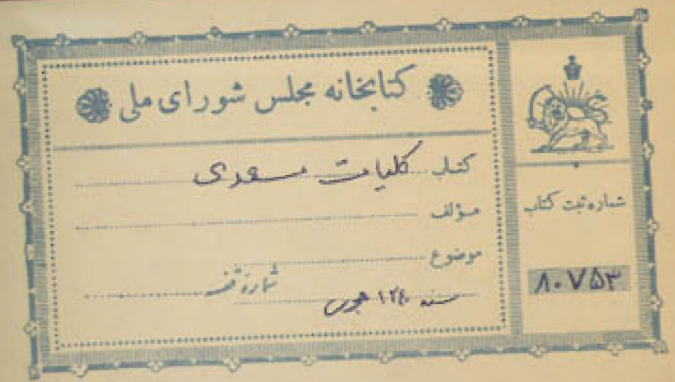 کتابخانه مجلس شورای ملی
کتاب کلیات سعدی
مؤلف
موضوع
شماره قفسه
سنه ۱۲۴۰ هجری
شماره ثبت کتاب
۸۰۷۵۳